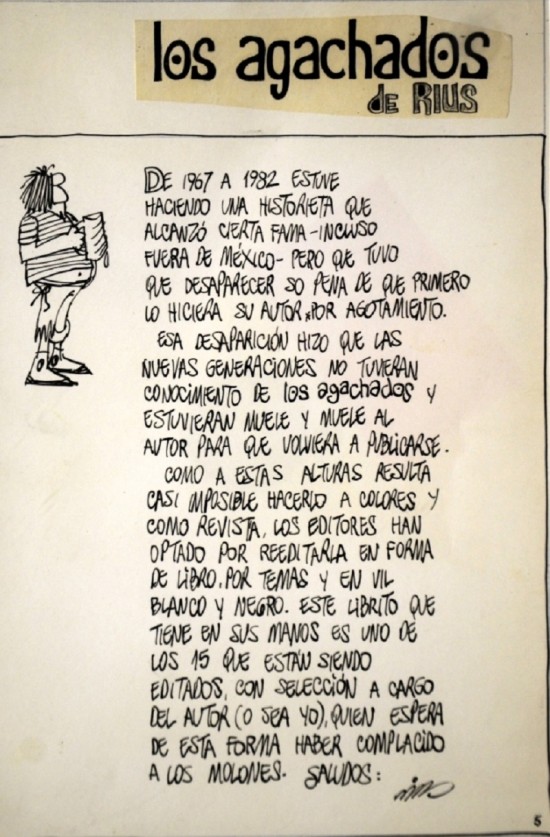 los agachados
de RIUS
DE 1967 A 1982 ESTUVE
HACIENDO UNA HISTORIETA QUE
ALCANZÓ CIERTA FAMA-INCLUSO
FUERA DE MÉXICO- PERO QUE TUVO
QUE DESAPARECER SO PENA DE QUE PRIMERO
LO HICIERA SU AUTOR, POR AGOTAMIENTO.
ESA DESAPARICIÓN HIZO QUE LAS
NUEVAS GENERACIONES NO TUVIERAN
CONOCIMIENTO DE los agachados Y
ESTUVIERAN MUELE Y MUELE AL
AUTOR PARA QUE VOLVIERA A PUBLICARSE.
COMO A ESTAS ALTURAS RESULTA
CASI IMPOSIBLE HACERLO A COLORES Y
COMO REVISTA, LOS EDITORES HAN
OPTADO POR REEDITARLA EN FORMA
DE LIBRO, POR TEMAS Y EN VIL
BLANCO Y NEGRO. ESTE LIBRITO QUE
TIENE EN SUS MANOS ES UNO DE
LOS 15 QUE ESTÁN SIENDO
EDITADOS, CON SELECCIÓN A CARGO
DEL AUTOR (O SEA YO), QUIEN ESPERA
DE ESTA FORMA HABER COMPLACIDO
A LOS MOLONES. SALUDOS:
rius
5